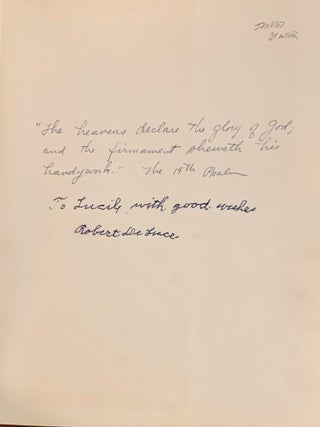 "The heavens declare the glory of God,
and the firmament sheweth his
handywork." The 19th Psalm
To Lucile with good wishes
Robert DeLuce